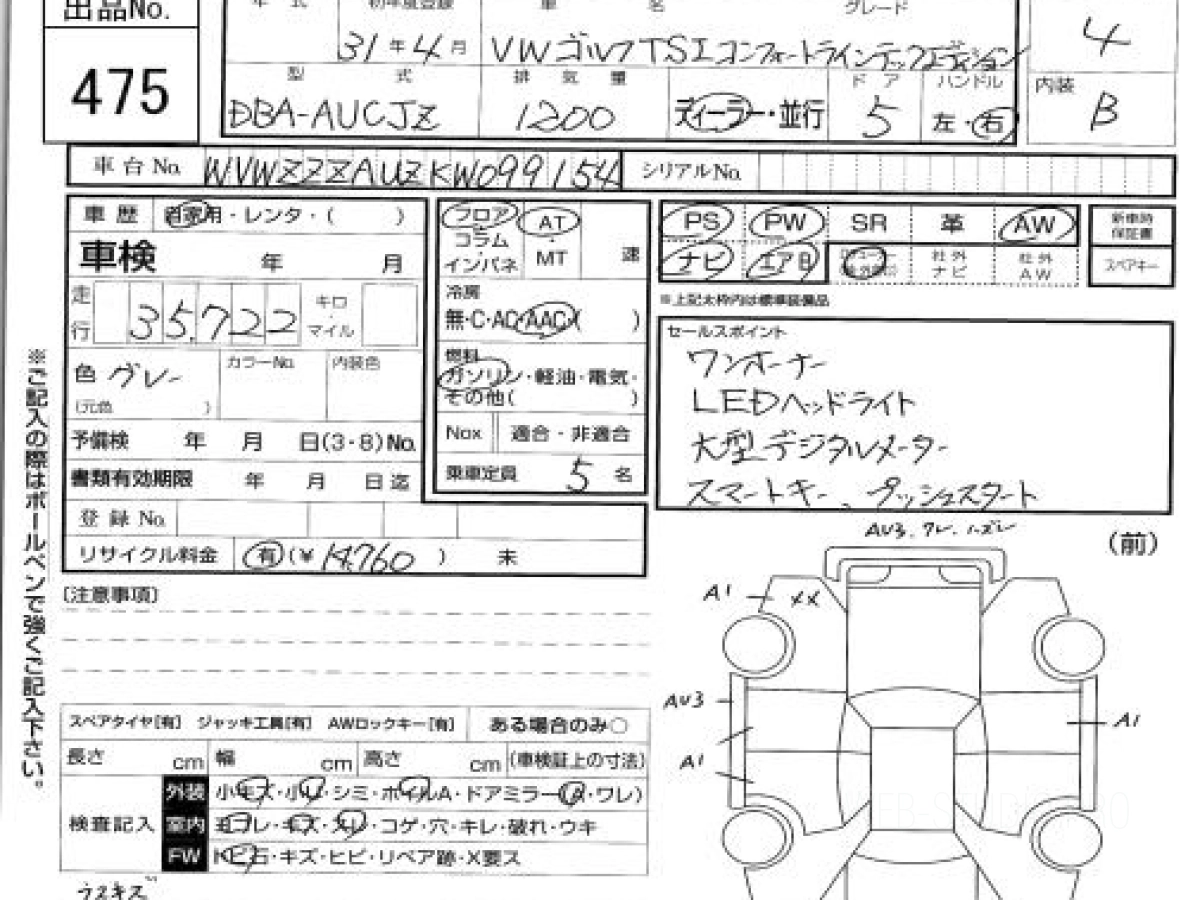 出品No. 年式 初年度登録 車名 グレード
475 31年4月 VWゴルフTSIコンフォートラインテックエディション 4
型式 排気量 ドア ハンドル 内装
DBA-AUCJZ 1200 ディーラー・並行 5 左・右 B
車台No. WVWZZZAUZKW099154 シリアルNo.
車歴 自家用・レンタ・( )
車検 年 月
走行 35,722 キロ・マイル
色 グレー カラーNo. 内装色
(元色 )
予備検 年 月 日(3・8)No.
書類有効期限 年 月 日迄
登録No.
リサイクル料金 有(¥14,760) 未
フロア AT
コラム ・
インパネ MT 速
冷房
無・C・AC・AAC( )
燃料
ガソリン・軽油・電気・
その他( )
Nox 適合・非適合
乗車定員 5 名
PS PW SR 革 AW 新車時保証書
ナビ エアB 社外ナビ 社外AW スペアキー
※上記太枠内は標準装備品
セールスポイント
ワンオーナー
LEDヘッドライト
大型デジタルメーター
スマートキー、プッシュスタート
〔注意事項〕
スペアタイヤ[有] ジャッキ工具[有] AWロックキー[有] ある場合のみ○
長さ cm 幅 cm 高さ cm (車検証上の寸法)
検査記入
外装 小キズ・小U・シミ・ホイルA・ドアミラー(A・ワレ)
室内 ヨゴレ・キズ・スレ・コゲ・穴・キレ・破れ・ウキ
FW トビ石・キズ・ヒビ・リペア跡・X要ス
ウスキズ
※ご記入の際はボールペンで強くご記入下さい。
AU3、ワレ、ハズレ
(前)
A1 XX
AU3
A1
A1